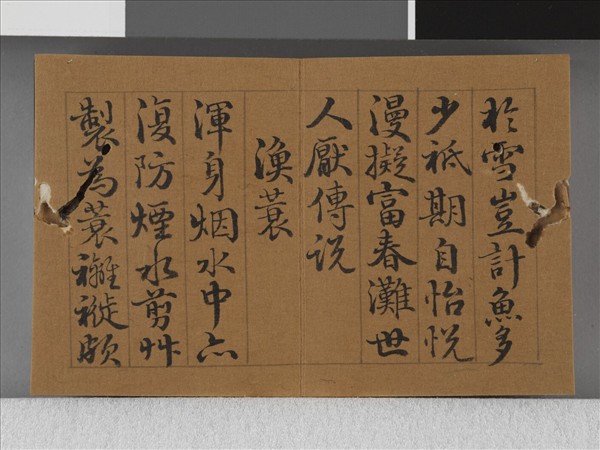 於雪豈計魚多
少祗期自怡悅
漫擬富春灘世
人厭傳説
漁蓑
渾身烟水中亦
復防煙水剪艸
製為蓑襳褷頗